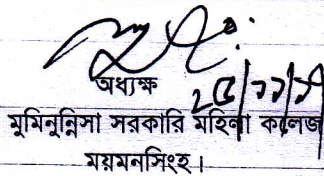 অধ্যক্ষ
মুমিনুন্নিসা সরকারি মহিলা কলেজ
ময়মনসিংহ।